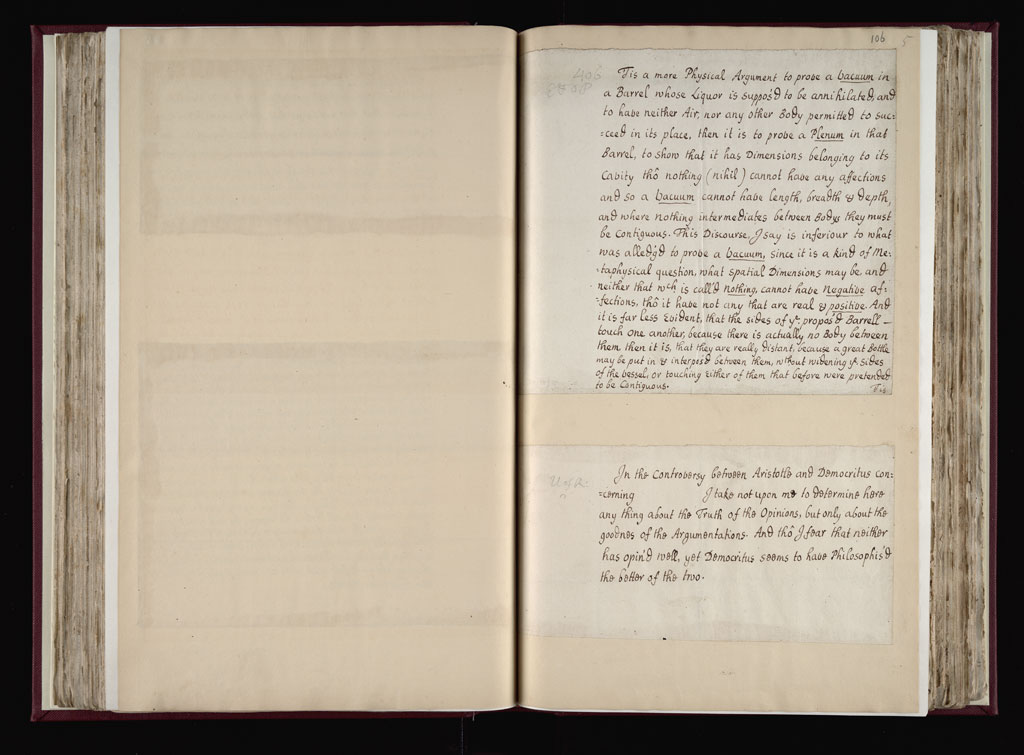 106 5
Tis a more Physical Argument to prove a Vacuum in
a Barrel whose Liquor is suppos'd to be annihilated, and
to have neither Air, nor any other Body permitted to suc=
=ceed in its place, then it is to prove a Plenum in that
Barrel, to show that it has Dimensions belonging to its
Cavity thô nothing (nihil) cannot have any affections
and so a Vacuum cannot have length, breadth & depth,
and where nothing intermediates between Bodys they must
be Contiguous. This Discourse, I say is inferiour to what
was alledg'd to prove a Vacuum, since it is a kind of Me=
=taphysical question, what spatial Dimensions may be, and
neither that wch is call'd Nothing, cannot have Negative af=
=fections, thô it have not any that are real & positive. And
it is far less Evident, that the sides of ye propos'd Barrell
touch one another, because there is actually no Body between
them then it is, that they are really distant, because a great Bottle
may be put in & interpos'd between them, wthout widening ye sides
of the vessel, or touching either of them that before were pretended
to be Contiguous.
Tis
In the Controversy between Aristotle and Democritus con=
=cerning I take not upon me to determine here
any thing about the Truth of the Opinions, but only about the
goodnes of the Argumentations. And thô I fear that neither
has opin'd well, yet Democritus seems to have Philosophis'd
the better of the two.